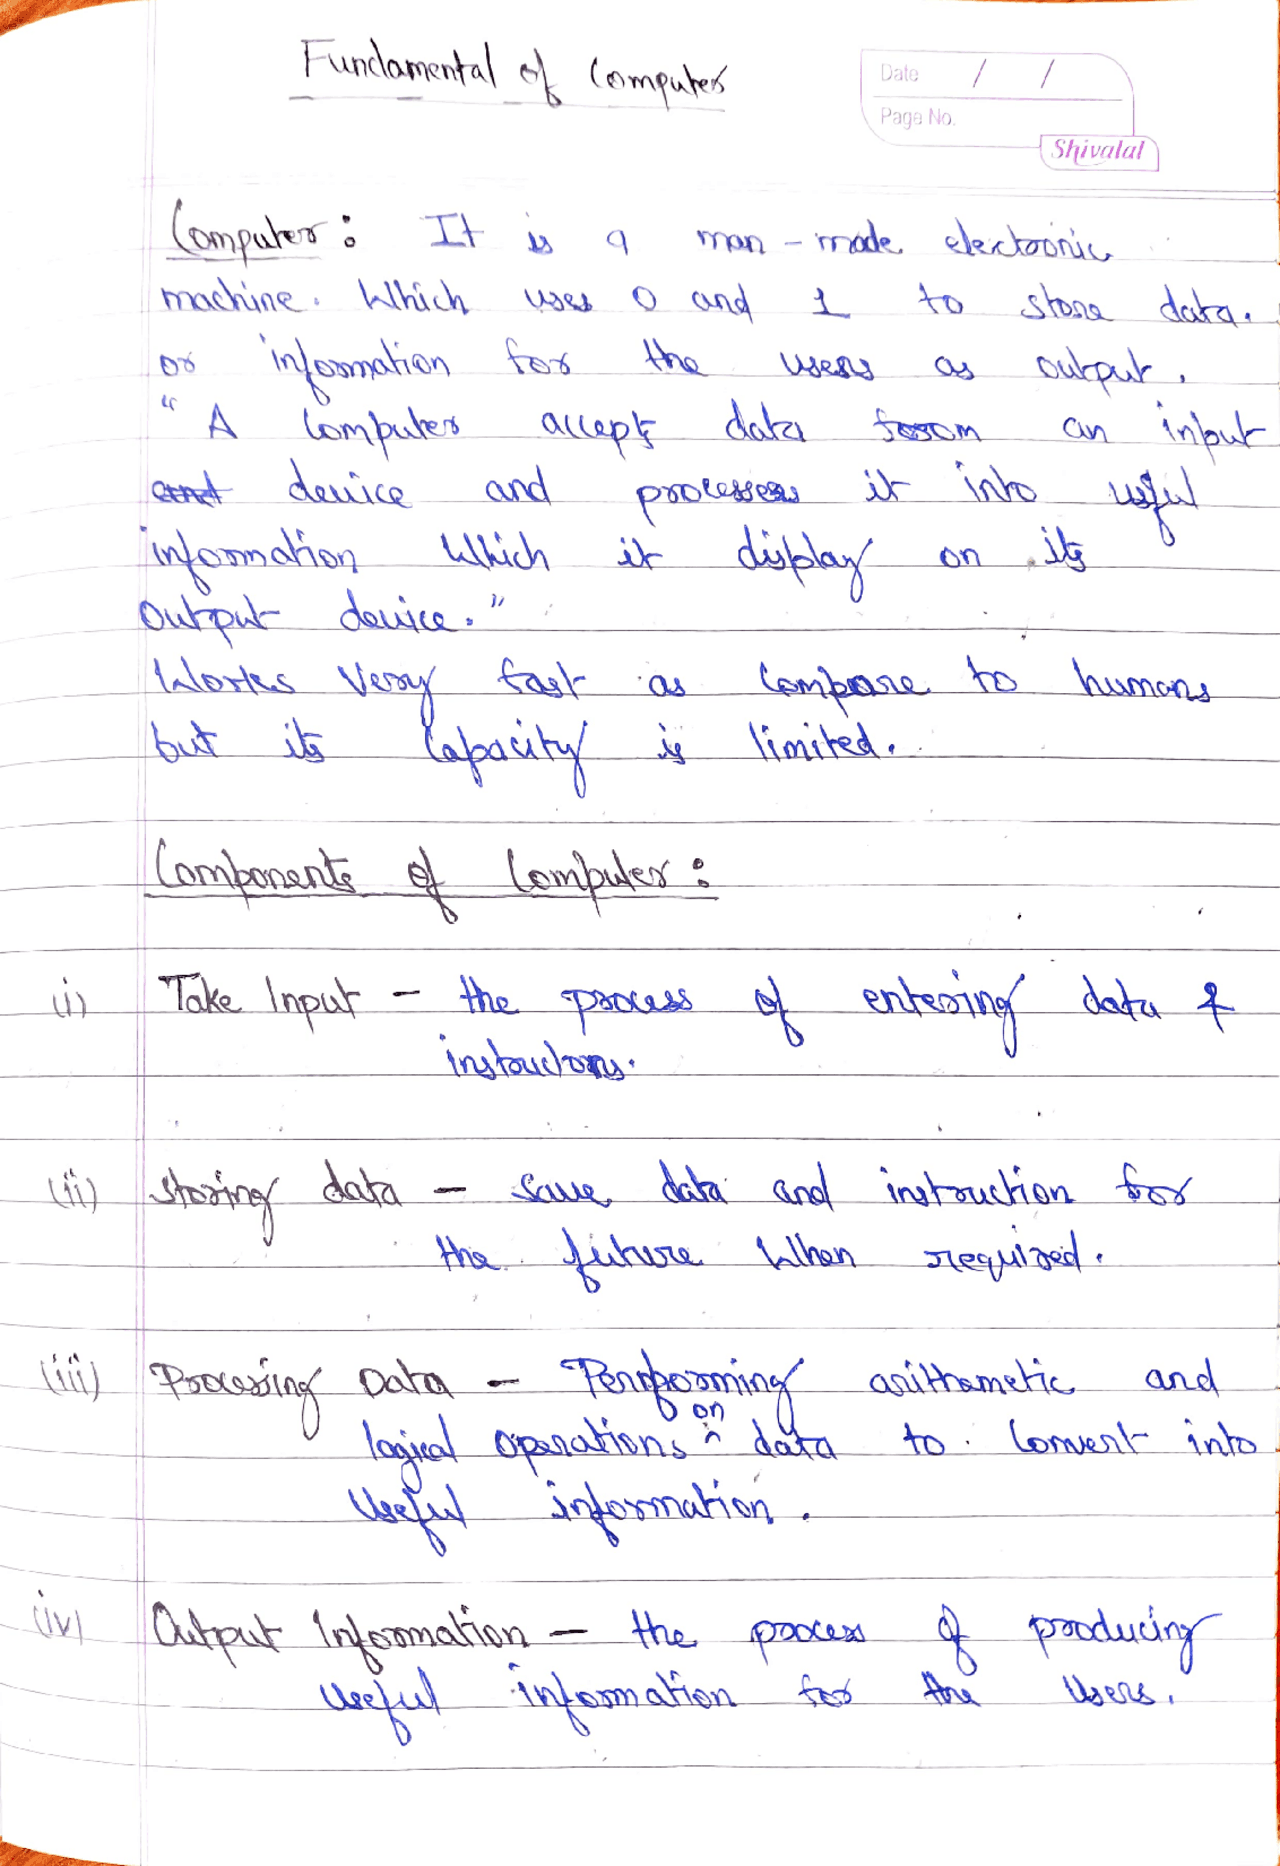 Fundamental of Computer
Date / /
Page No.
Shivalal
Computer : It is a man-made electronic
machine. Which uses 0 and 1 to store data.
or information for the users as output.
"A Computer accepts data from an input
and device and processes it into useful
information Which it display on its
output device."
Works Very fast as Compare to humans
but its Capacity is limited.
Components of Computer :
(i) Take Input - the process of entering data &
instructons.
(ii) Storing data - save data and instruction for
the future When required.
(iii) Processing Data - Perpforming arithametic and
on
logical operations ^ data to Convert into
Useful information.
(iv) Output Information - the process of producing
Useful information for the Users.